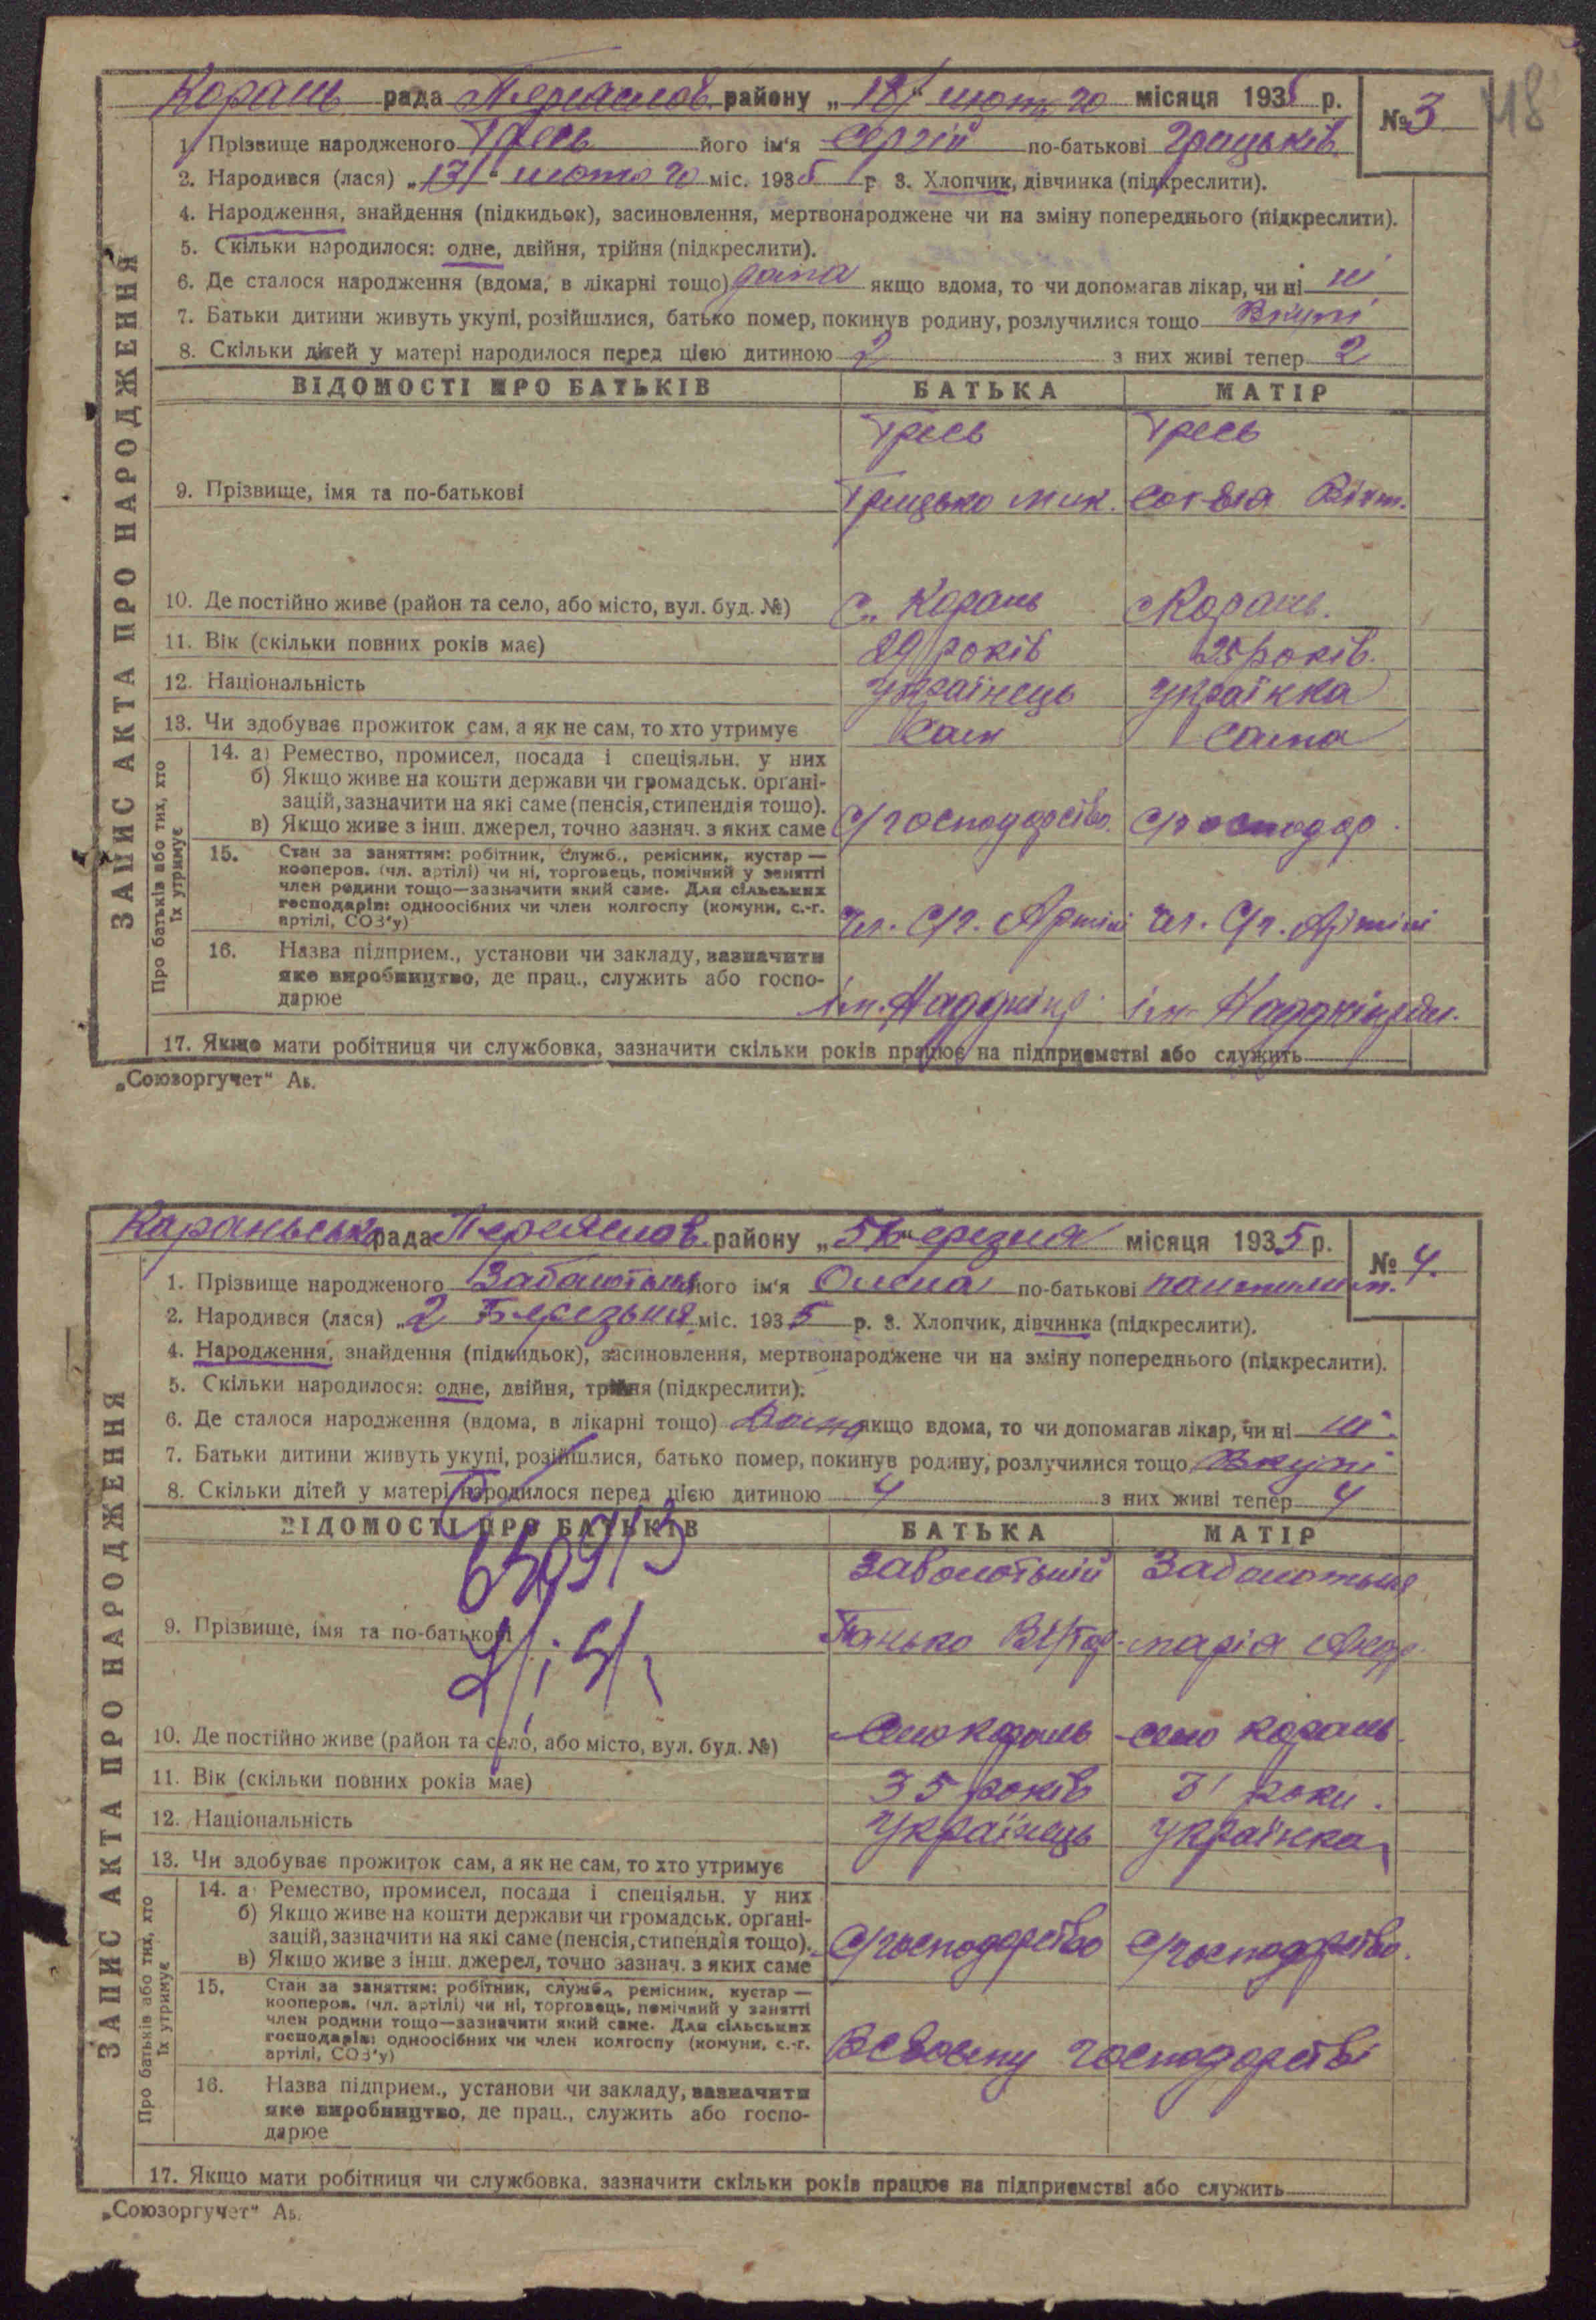 Корань рада Переяслов району „18" лютого місяця 1935 р.
№ 3
118
1. Прізвище народженого Тресь його ім'я Сергій по-батькові Грицьків
2. Народився (лася) „13" лютого міс. 1935 р. 3. Хлопчик, дівчинка (підкреслити).
4. Народження, знайдення (підкидьок), засиновлення, мертвонароджене чи на зміну попереднього (підкреслити).
5. Скільки народилося: одне, двійня, трійня (підкреслити).
6. Де сталося народження (вдома, в лікарні тощо) дома якщо вдома, то чи допомагав лікар, чи ні ні
7. Батьки дитини живуть укупі, розійшлися, батько помер, покинув родину, розлучилися тощо Вкупі
8. Скільки дітей у матері народилося перед цією дитиною 2 з них живі тепер 2
ВІДОМОСТІ ПРО БАТЬКІВ БАТЬКА МАТІР
Тресь Тресь
9. Прізвище, імя та по-батькові Грицько Мик. Софія
10. Де постійно живе (район та село, або місто, вул. буд. №) с. Корань с Корань.
11. Вік (скільки повних років має) 29 років 25 років.
12. Національність Українець Українка
13. Чи здобуває прожиток сам, а як не сам, то хто утримує Сам Сама
14. а) Ремество, промисел, посада і спеціяльн. у них
б) Якщо живе на кошти держави чи громадськ. органі-
зацій, зазначити на які саме (пенсія, стипендія тощо).
в) Якщо живе з інш. джерел, точно зазнач. з яких саме С/господарство. С/господар.
15. Стан за заняттям: робітник, служб., ремісник, кустар —
кооперов. (чл. артілі) чи ні, торговець, помічний у занятті
член родини тощо—зазначити який саме. Для сільських
господарів: одноосібних чи член колгоспу (комуни, с.-г.
артілі, СОЗ'у) Чл. С/г. Артілі Чл. С/г. Артілі
16. Назва підприєм., установи чи закладу, зазначити
яке виробництво, де прац., служить або госпо-
дарюе ім. ім.
17. Якщо мати робітниця чи службовка, зазначити скільки років працює на підприємстві або служить
Про батьків або тих, хто їх утримує
ЗАПИС АКТА ПРО НАРОДЖЕННЯ
„Союзоргучет" Аз.
Караньська рада Переяслов району „5" Березня місяця 1935 р.
№ 4.
1. Прізвище народженого Заболотьня його ім'я Олена по-батькові
2. Народився (лася) „2 Березьня міс. 1935 р. 3. Хлопчик, дівчинка (підкреслити).
4. Народження, знайдення (підкидьок), засиновлення, мертвонароджене чи на зміну попереднього (підкреслити).
5. Скільки народилося: одне, двійня, трійня (підкреслити).
6. Де сталося народження (вдома, в лікарні тощо) Дома якщо вдома, то чи допомагав лікар, чи ні ні.
7. Батьки дитини живуть укупі, розійшлися, батько помер, покинув родину, розлучилися тощо Вкупі
8. Скільки дітей у матері народилося перед цією дитиною 4 з них живі тепер 4
ВІДОМОСТІ ПРО БАТЬКІВ БАТЬКА МАТІР
Заболотьний Заболотьня
9. Прізвище, імя та по-батькові Панько Марія
10. Де постійно живе (район та село, або місто, вул. буд. №) Село Корань село Корань.
11. Вік (скільки повних років має) 35 років 31 роки.
12. Національність Українець Українка
13. Чи здобуває прожиток сам, а як не сам, то хто утримує
14. а Ремество, промисел, посада і спеціяльн. у них
б) Якщо живе на кошти держави чи громадськ. органі-
зацій, зазначити на які саме (пенсія, стипендія тощо).
в) Якщо живе з інш. джерел, точно зазнач. з яких саме С/господорство С/господорство.
15. Стан за заняттям: робітник, служб., ремісник, кустар —
кооперов. (чл. артілі) чи ні, торговець, помічний у занятті
член родини тощо—зазначити який саме. Для сільських
господарів: одноосібних чи член колгоспу (комуни, с.-г.
артілі, СОЗ'у) В своєму господорстві
16. Назва підприєм., установи чи закладу, зазначити
яке виробництво, де прац., служить або госпо-
дарюе
17. Якщо мати робітниця чи службовка, зазначити скільки років працює на підприємстві або служить
Про батьків або тих, хто їх утримує
ЗАПИС АКТА ПРО НАРОДЖЕННЯ
„Союзоргучет" Аз.